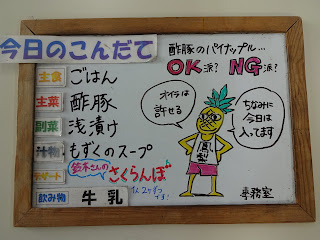 今日のこんだて
主食 ごはん
主菜 酢豚
副菜 浅漬け
汁物 もずくのスープ
デザート 鈴木さんのさくらんぼ
1人2ケずつです!
飲み物 牛乳
酢豚のパイナップル…
OK派? NG派?
オイラは
許せる
ちなみに
今日は
入ってます
鳳梨
事務室